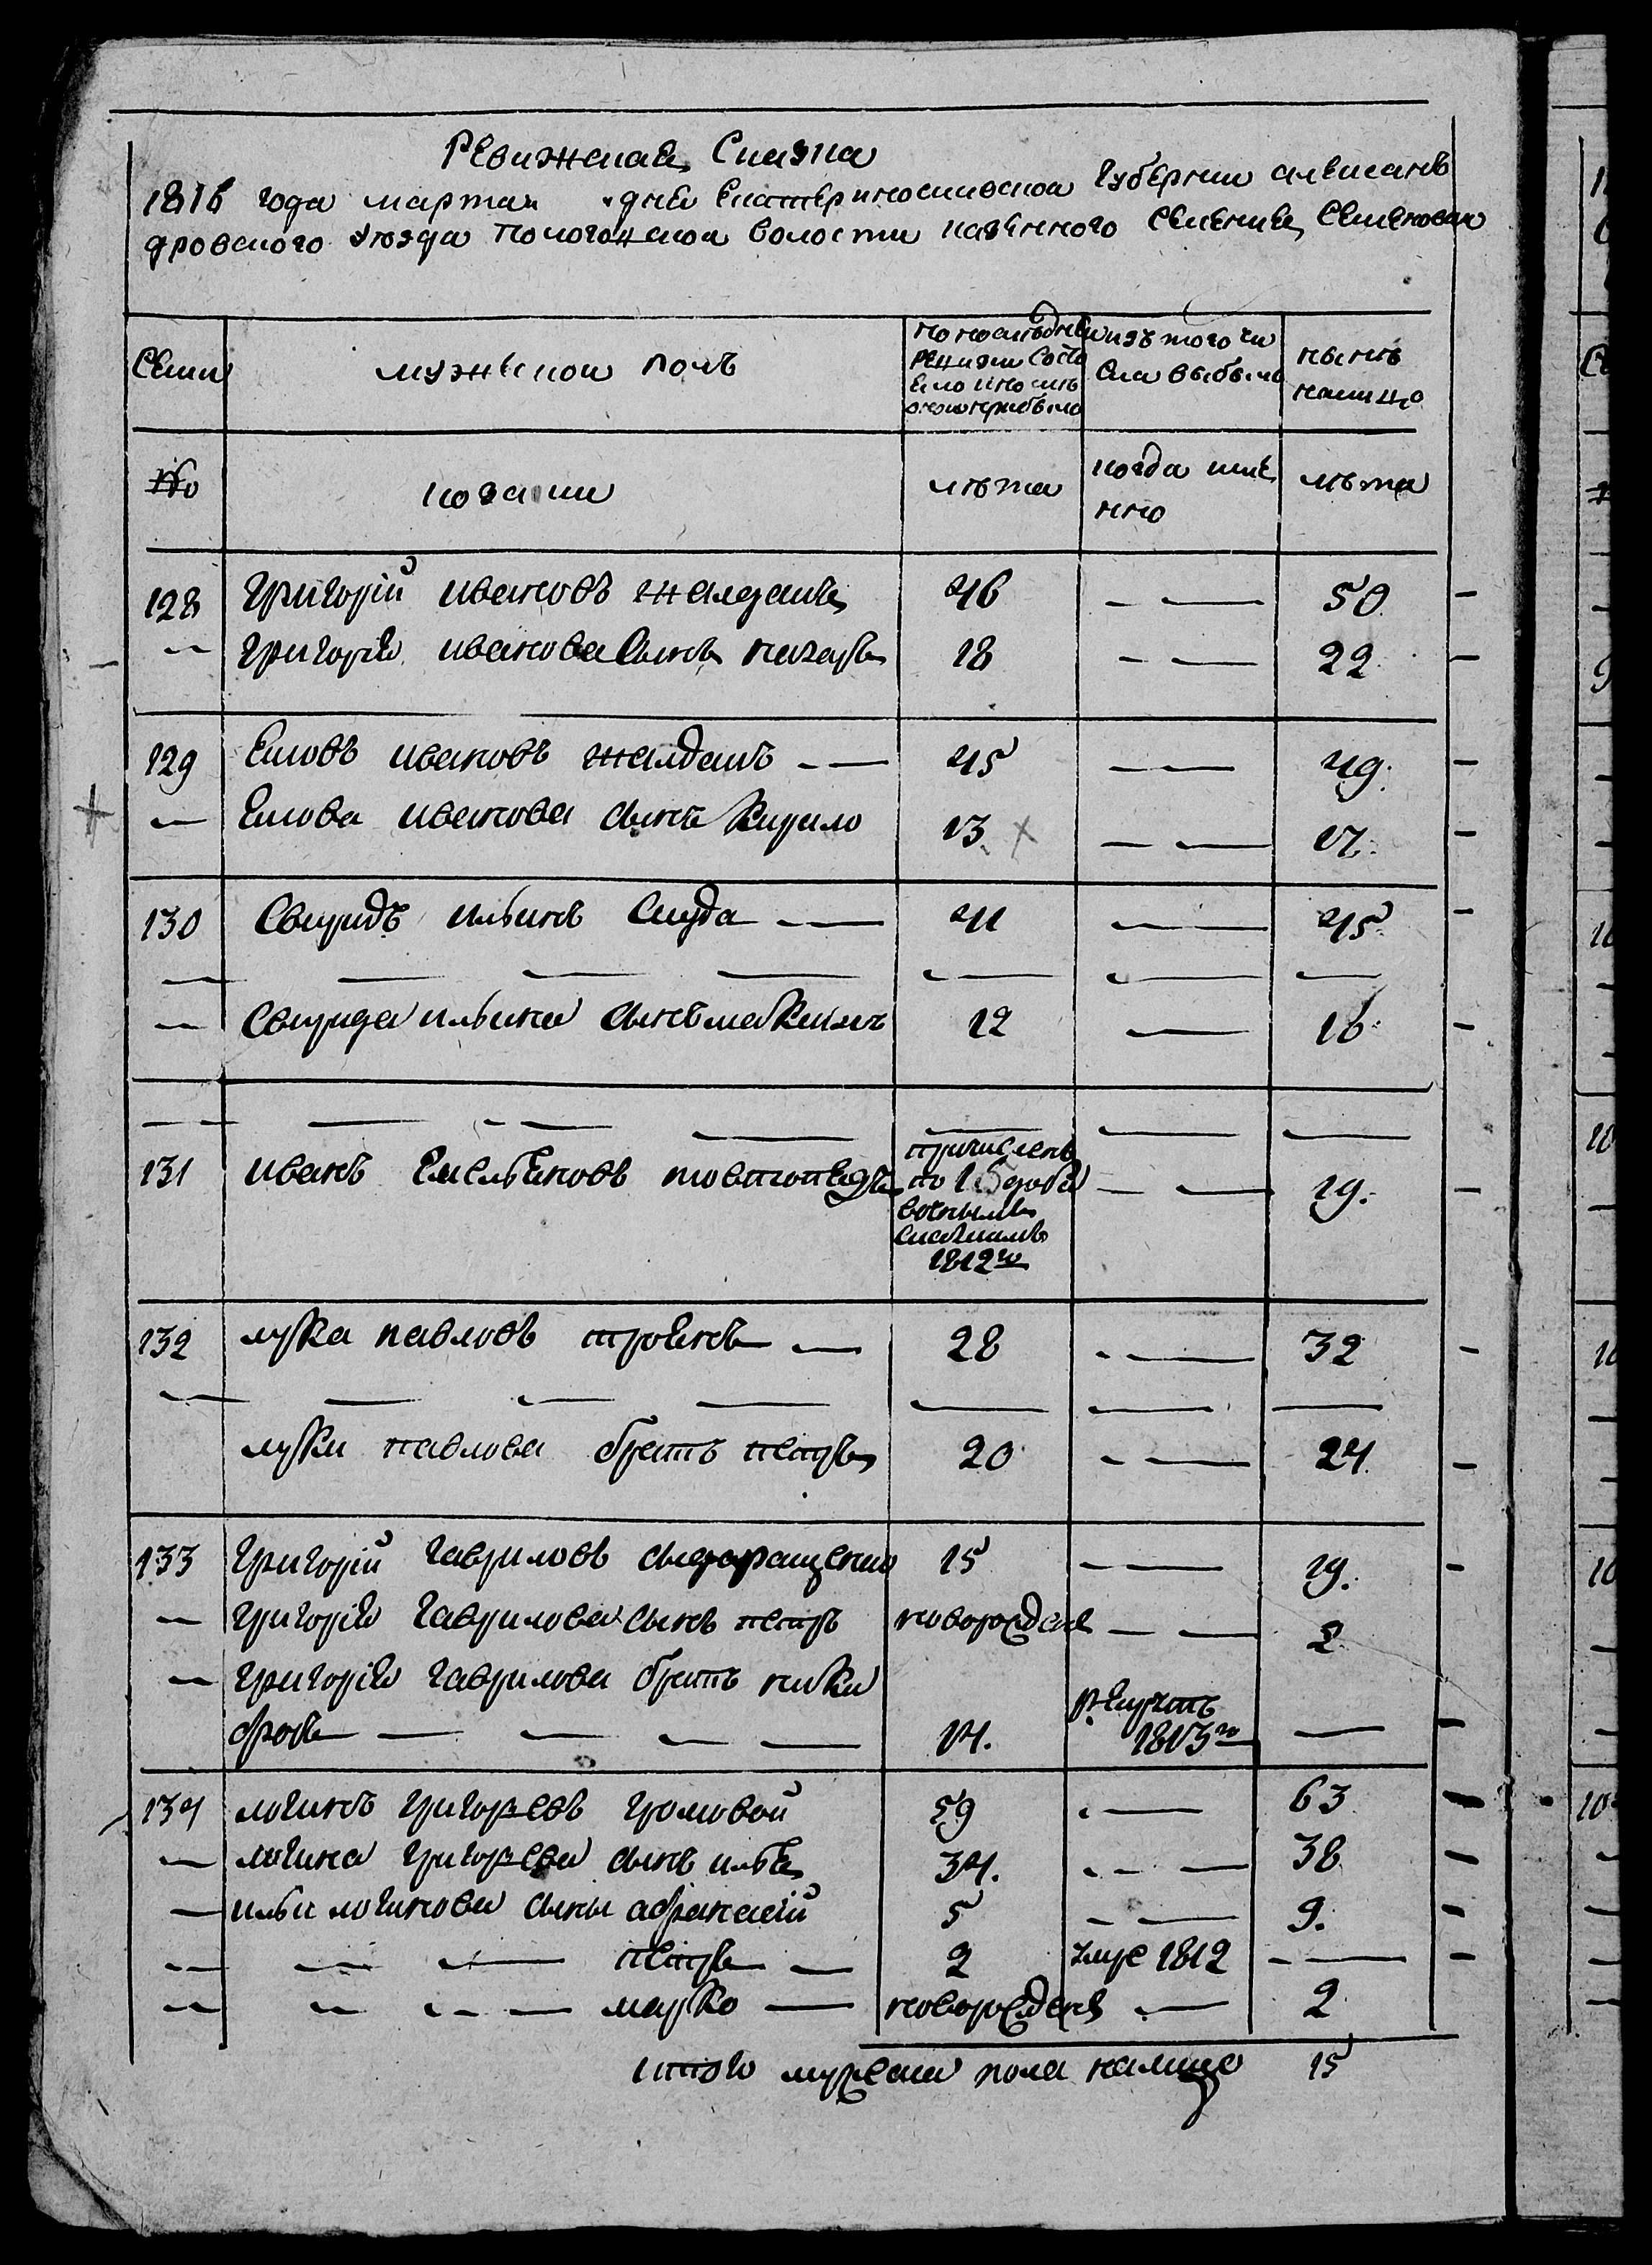 Ревижская Сказка
1816 года марта дня Екатериносливской Губернии алексанъ
дровского уюзда Пологовской волости казенного Селения, Семеновки
Семи мужеской полъ по последней ревизии состо яло и после оной прибыло изъ того чи сла выбыло нынѣ налицо
№ козаки лѣта когда име нно лѣта
128 Григорій ивановъ жалдакъ 46 — — 50
— Григорія иванова сынъ назаръ 18 — — 22
129 Еховъ ивановъ жалдакъ — — 45 — — 49.
— Екова иванова сынъ Кирило 13. × — — 17.
130 Свиридъ ильинъ Скуда — 41 — — 45.
— — — — — — —
— Свирида ильина сынъ маКсимъ 12 — 16
— — — — — — — —
131 иванъ Емельяновъ товстопядъ причисленъ по 15 род воспымъ сказкамъ 1812го — — 19.
132 луКа павловъ троянъ — 28 — — 32
— — — — — — —
луКи павлова братъ петръ 20 — — 24.
133 Григорій Гавриловъ сыдоращенко 15 — — 19.
— Григорія Гаврилова сынъ петръ новорожденъ — — 2
— Григорія Гаврилова братъ ниКи
форъ — — — — 14. рекрутъ 1813го —
134 логинъ григорьевъ громовой 59 — — 63
— логина григорьева сынъ илья 34. — — 38
— ильи логинова сыны афанасій 5 — — 9.
— — — петръ — 2 умре 1812 — —
— — — — марКо — новорожденъ — 2
итого мужеска пола налицо 15